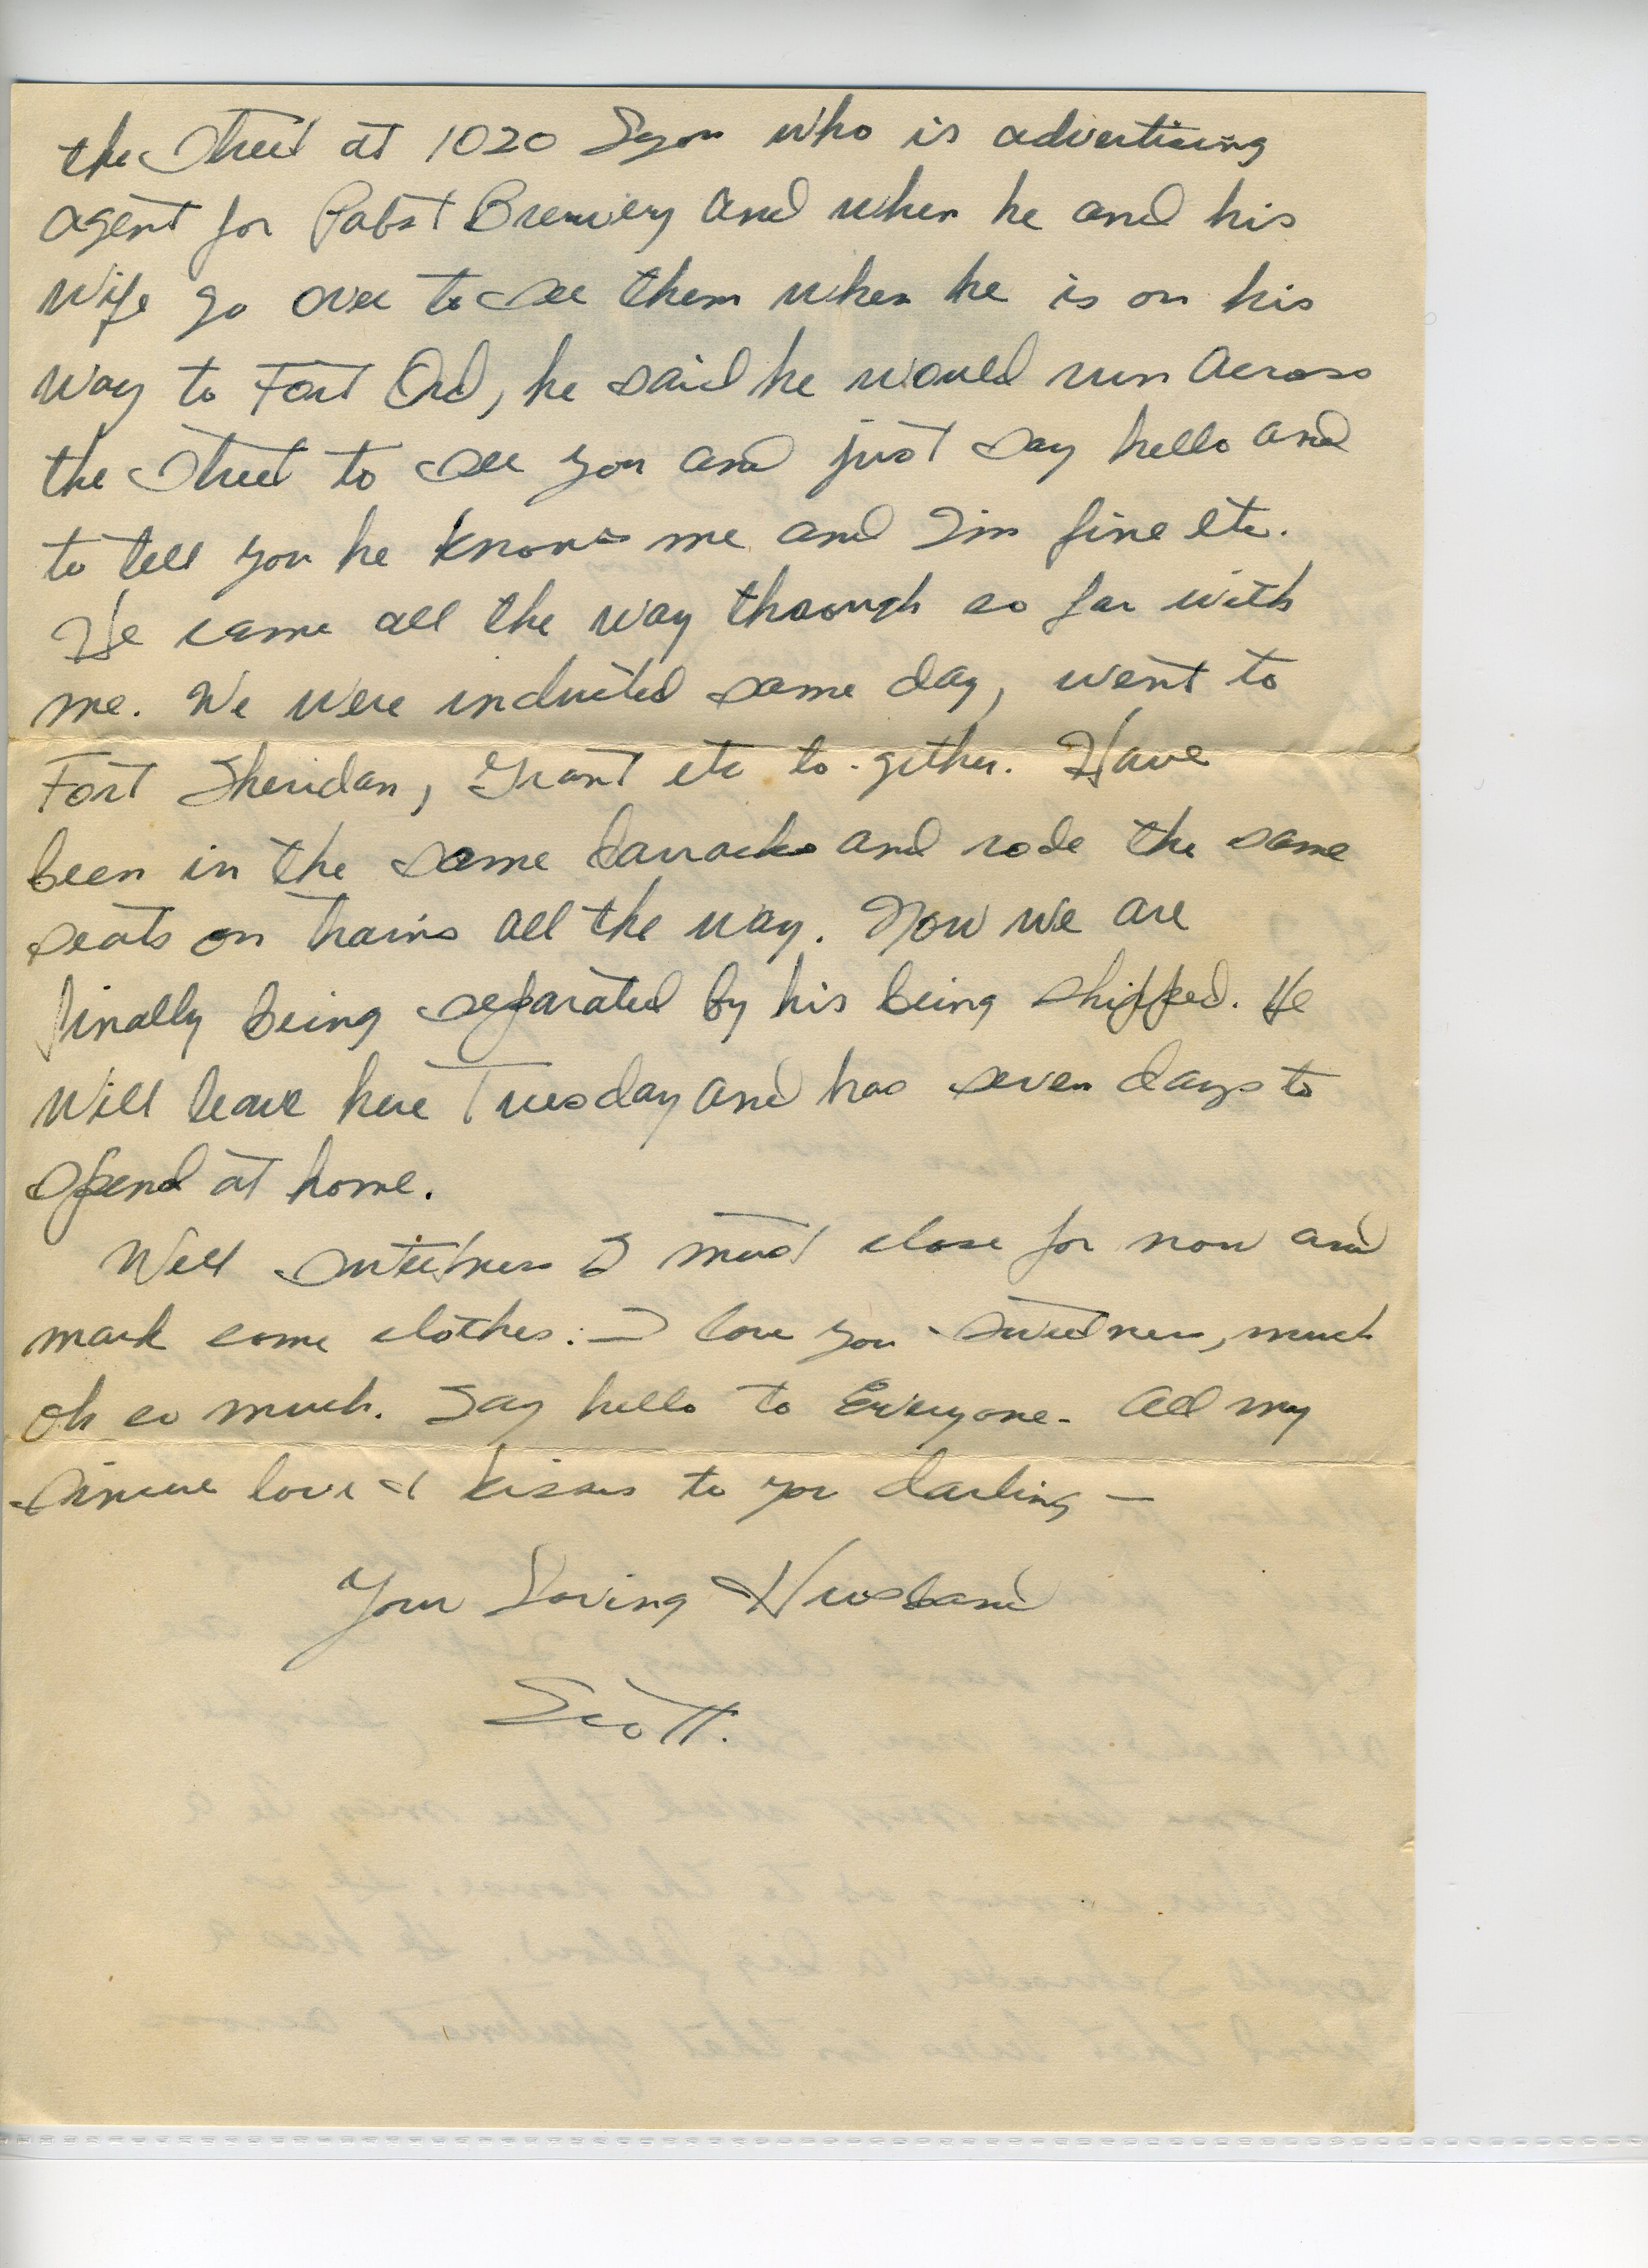 the street at 1020 who is advertising
agent for Pabst Brewery and when he and his
wife go over to see them when he is on his
way to Fort Ord, he said he would run across
the street to see you and just say hello and
to tell you he knows me and I'm fine etc.
He came all the way through so far with
me. We were inducted same day, went to
Fort Sheridan, Grant etc to-gether. Have
been in the same barracks and rode the same
seats on trains all the way. Now we are
finally being separated by his being shipped. He
will leave here Tuesday and has seven days to
spend at home.
Well sweetness I must close for now and
mark some clothes. I love you sweetness, much
oh so much. Say hello to Everyone. All my
sincere love & kisses to you darling —
Your Loving Husband
Scott.